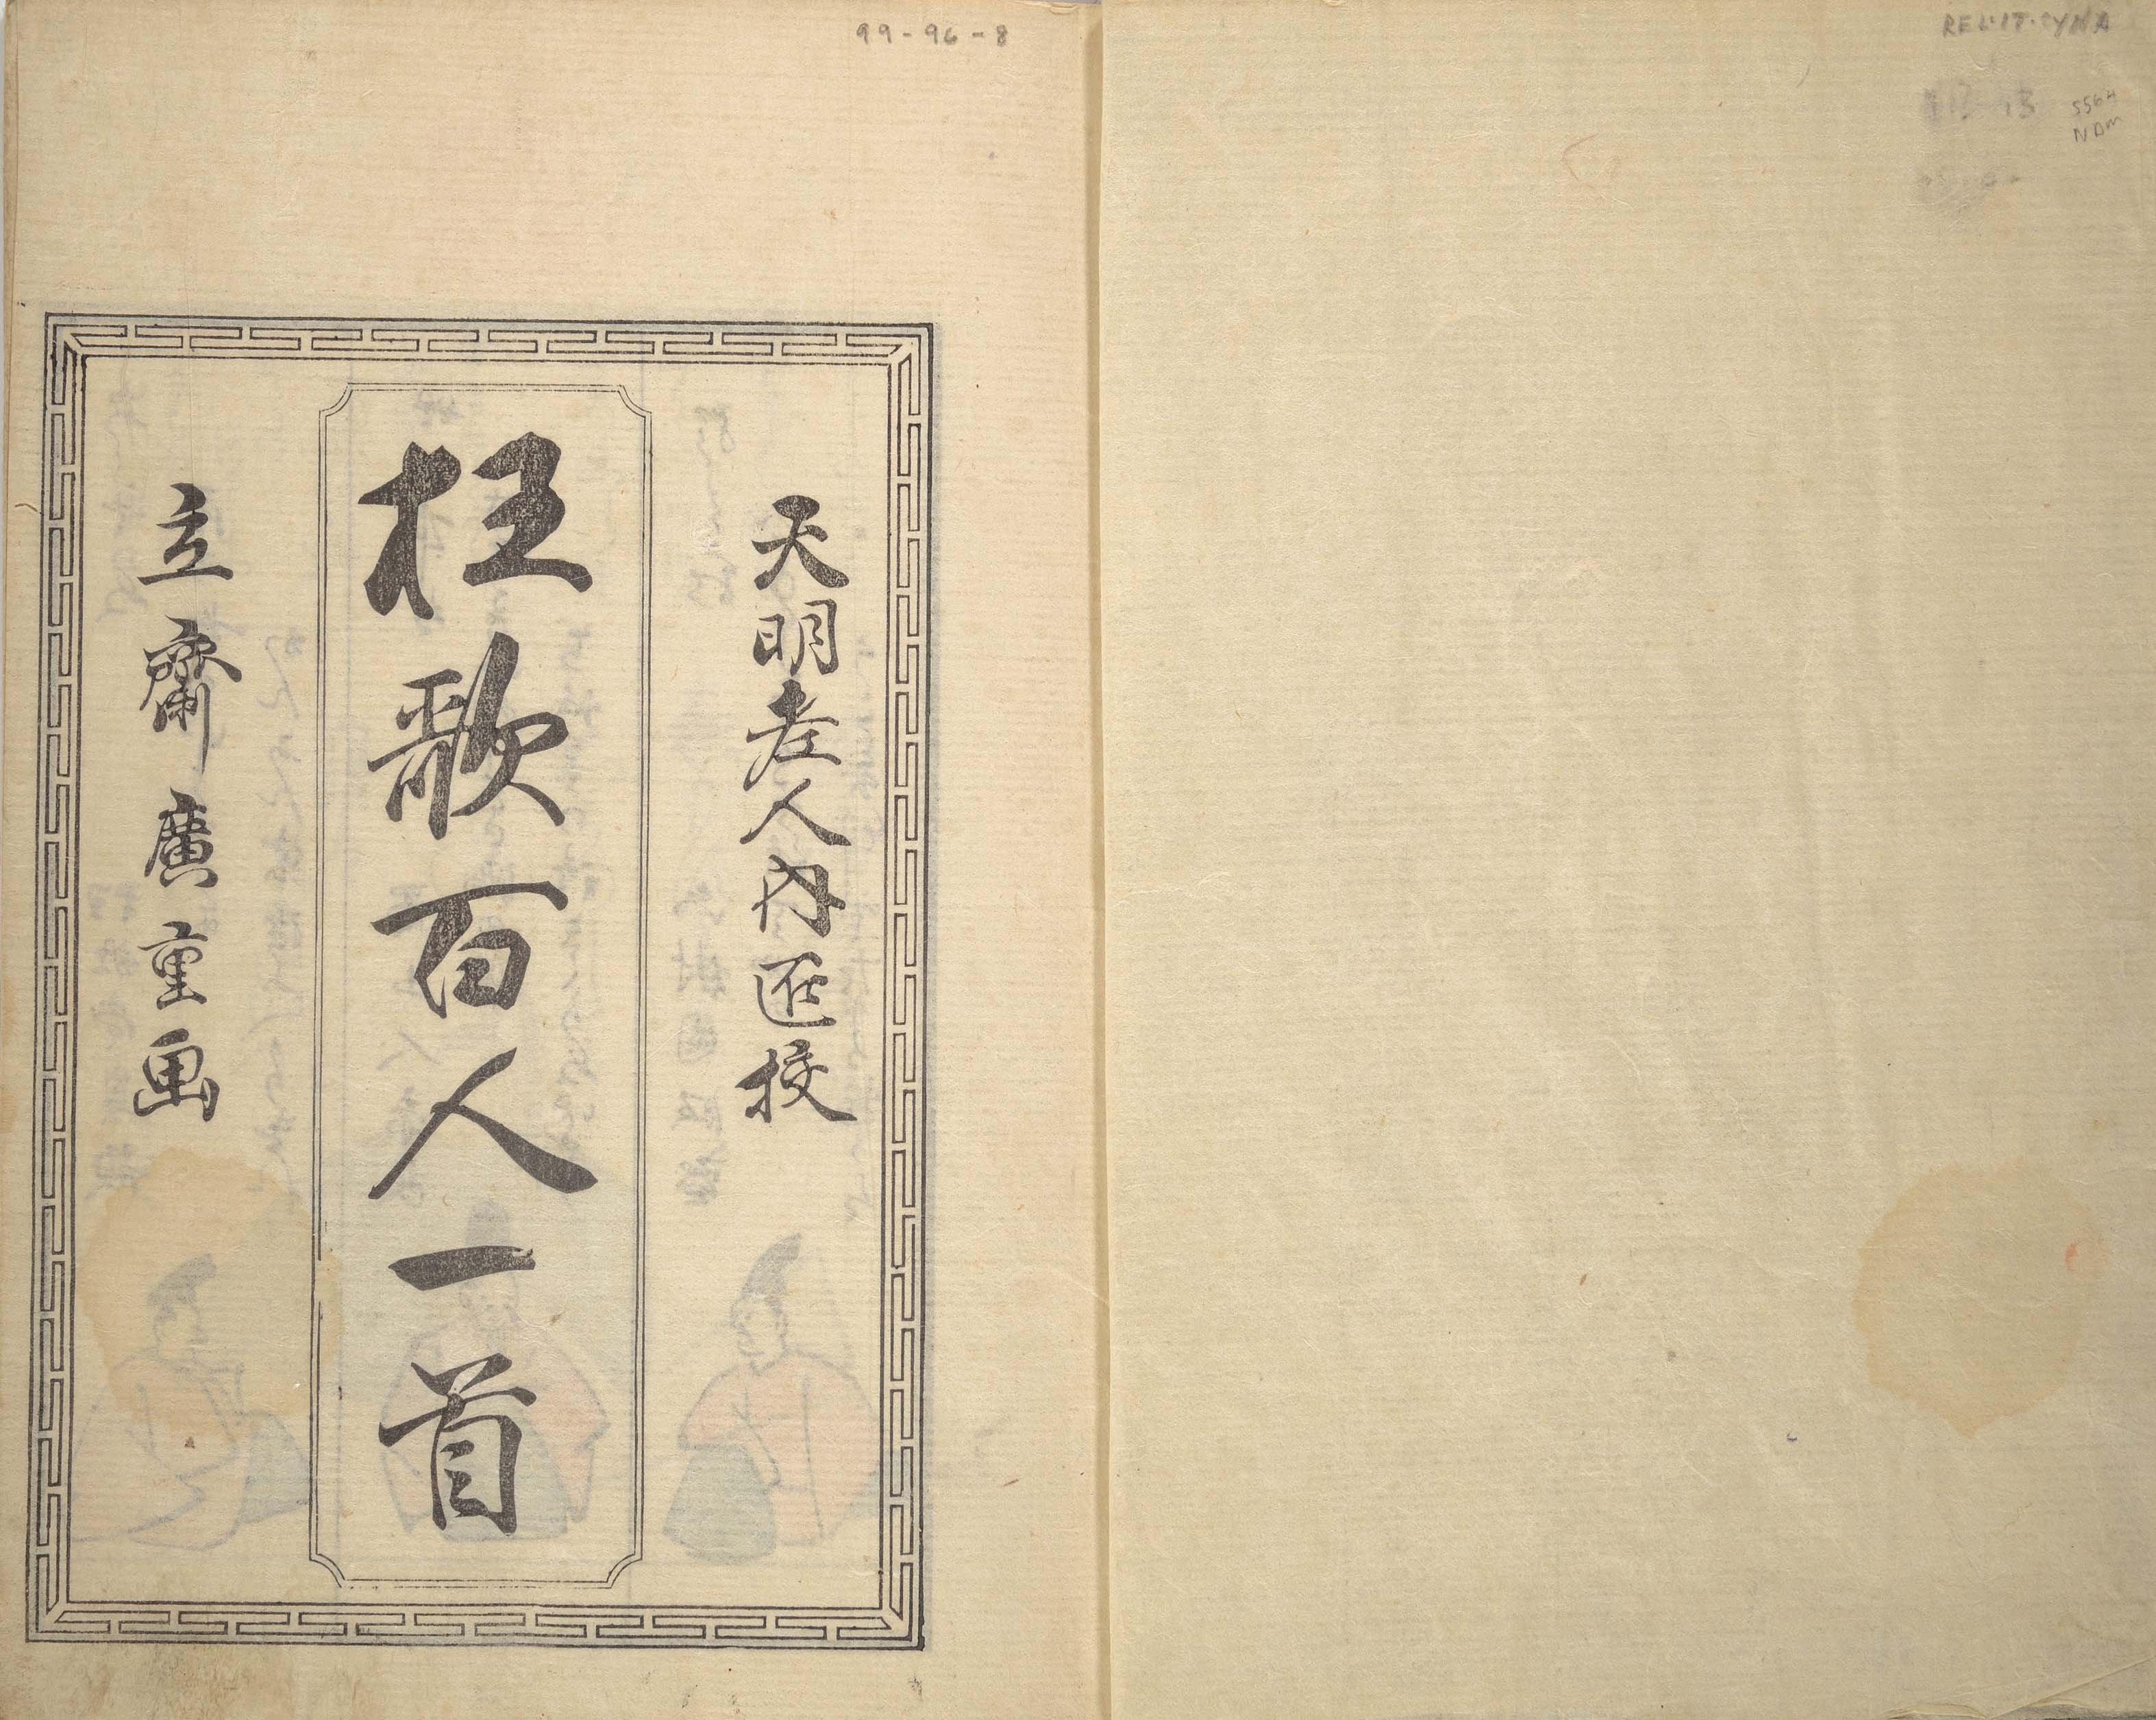 99-96-8
5564
NDM
天明老人内匠校
狂歌百人一首
立齋廣重画